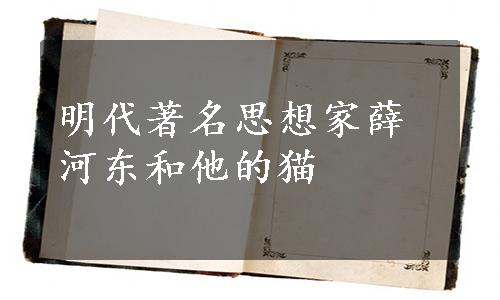 明代著名思想家薛
河东和他的猫